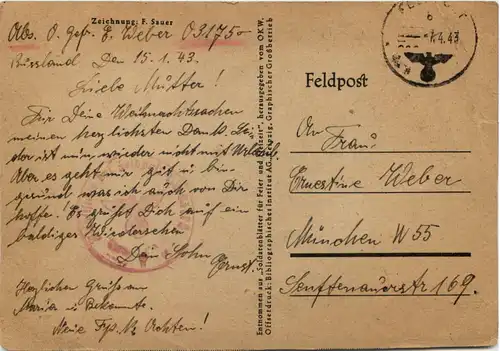 Zeichnung: F. Sauer
Abs. O. Gefr. E. Weber 03175
Russland Den 15.1.43.
Liebe Mutter!
Für Deine Weihnachtssachen
meinen herzlichsten Dank. Lei-
der ist nun wieder nicht mit Urlaub.
Aber es geht mir gut u. bin
gesund was ich auch von Dir
hoffe. Es grüßt Dich auf ein
baldiges Wiedersehen
Dein Sohn
Ernst.
Herzlichen Gruß an
Maria u. Bekannte.
Neue Fp. Nr. Achten!
Entnommen aus „Soldatenblätter für Feier und Freizeit", herausgegeben vom OKW.
Offsetdruck: Bibliographisches Institut AG., Leipzig, Graphischer Großbetrieb
4.43
b
Feldpost
An Frau
Ernestine Weber
München W 55
169.